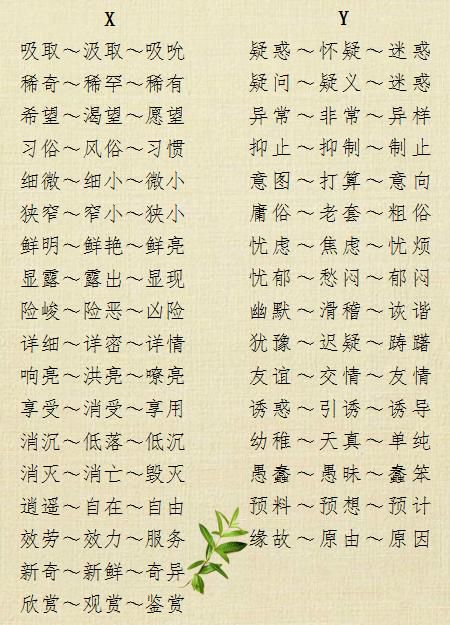 X
吸取～汲取～吸吮
稀奇～稀罕～稀有
希望～渴望～愿望
习俗～风俗～习惯
细微～细小～微小
狭窄～窄小～狭小
鲜明～鲜艳～鲜亮
显露～露出～显现
险峻～险恶～凶险
详细～详密～详情
响亮～洪亮～嘹亮
享受～消受～享用
消沉～低落～低沉
消灭～消亡～毁灭
逍遥～自在～自由
效劳～效力～服务
新奇～新鲜～奇异
欣赏～观赏～鉴赏
Y
疑惑～怀疑～迷惑
疑问～疑义～迷惑
异常～非常～异样
抑止～抑制～制止
意图～打算～意向
庸俗～老套～粗俗
忧虑～焦虑～忧烦
忧郁～愁闷～郁闷
幽默～滑稽～诙谐
犹豫～迟疑～踌躇
友谊～交情～友情
诱惑～引诱～诱导
幼稚～天真～单纯
愚蠢～愚昧～蠢笨
预料～预想～预计
缘故～原由～原因